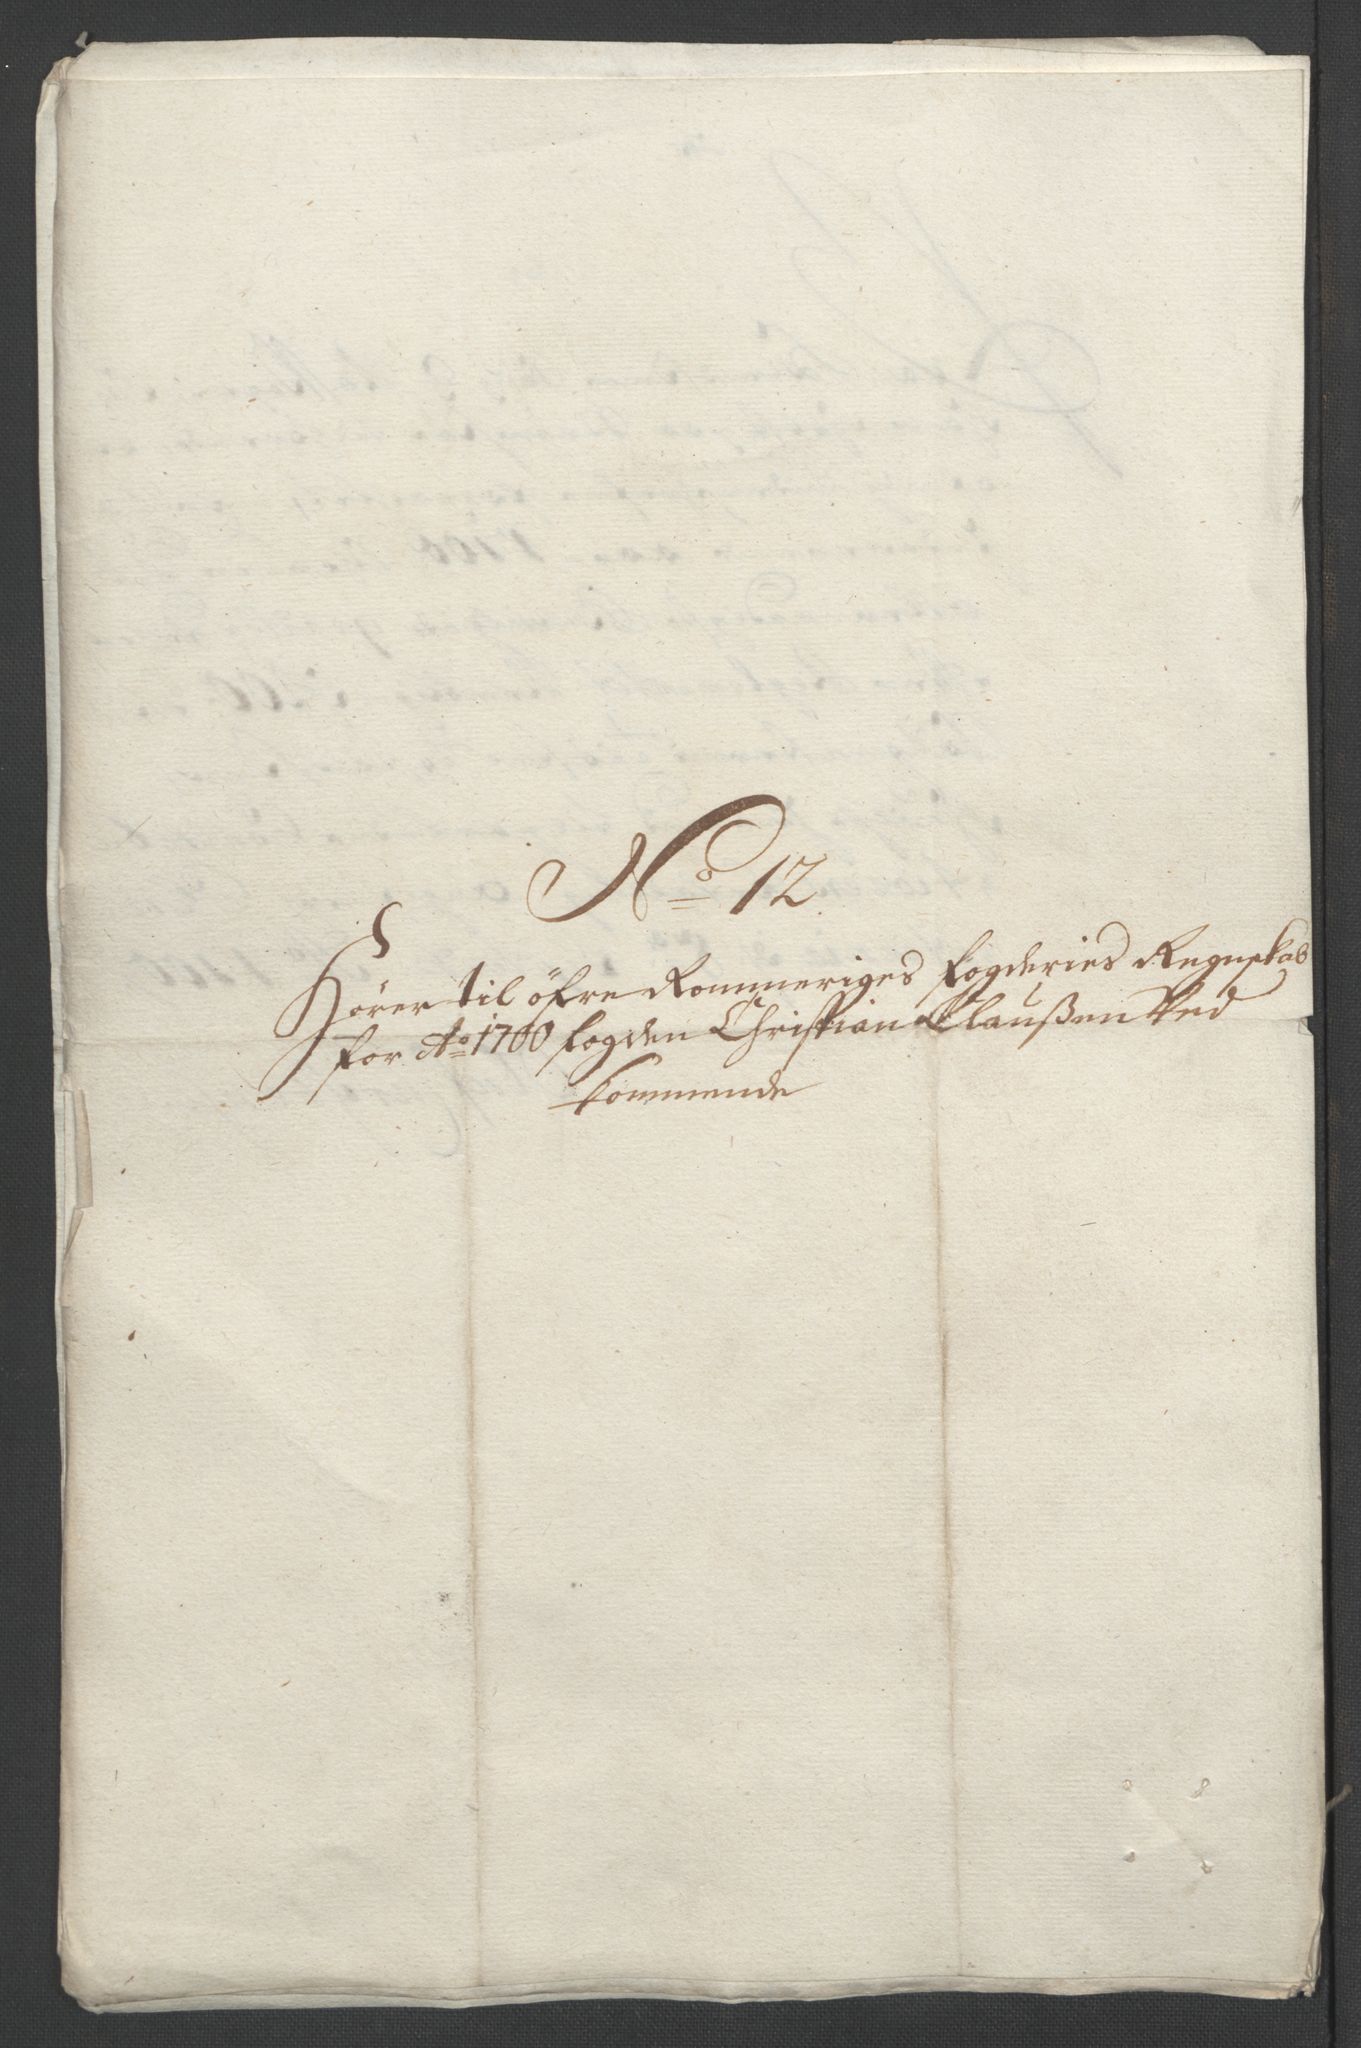 No 12
Hörer til öfre Rommeriges fogderies Regnskab
for Ao 1700 fogden Christian Claußen Ved
kommende